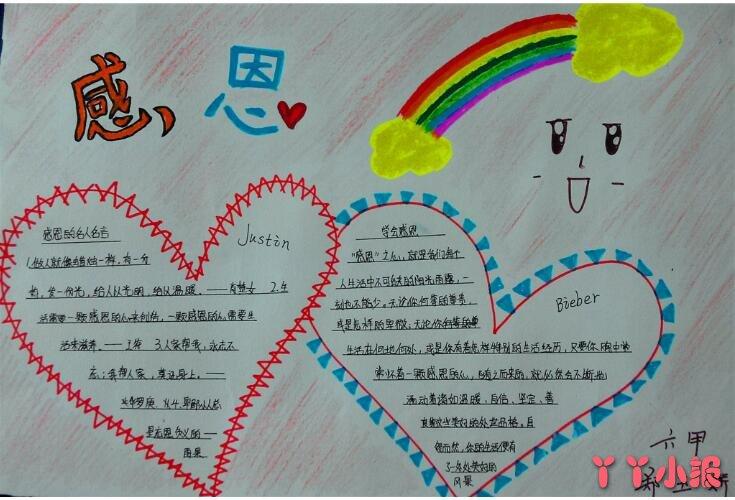 感恩
感恩的名人名言
Justin
1.做人就像蜡烛一样,有一分
热,发一份光,给人以光明,给以温暖。——肖楚女 2.生
活需要一颗感恩的心来创造,一颗感恩的心需要生
活来滋养。——王符 3.人家帮我,永志不
忘;我帮人家,莫记心上。——
华罗庚
忘恩负义的——
雨果
学会感恩
"感恩"之心,就是我们每个
人生活中不可或缺的阳光雨露,一
刻也不能少。无论你何等的尊贵,
或是怎样的卑微;无论你
生活在何地何处,或是你有着怎样特别的生活经历,只要你胸中
常怀着一颗感恩的心,随之而来的,就必然会不断地
涌动着诸如温暖、自信、坚定、善
良等这些美好的处世品格。自
然而然,你的生活便有
了一处处美好的
风景
Bieber
六甲
丫丫小报